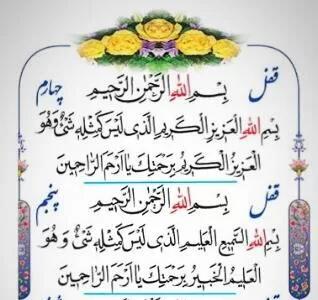 قفل چهارم
بِسْمِ اللهِ الرَّحْمٰنِ الرَّحِیمِ
بِسْمِ اللهِ الْعَزِیزِ الْکَرِیمِ الَّذِی لَیْسَ کَمِثْلِهِ شَیْءٌ وَهُوَ
الْعَزِیزُ الْکَرِیمُ بِرَحْمَتِكَ یَا اَرْحَمَ الرَّاحِمِینَ
قفل پنجم
بِسْمِ اللهِ الرَّحْمٰنِ الرَّحِیمِ
بِسْمِ اللهِ السَّمِیعِ الْعَلِیمِ الَّذِی لَیْسَ کَمِثْلِهِ شَیْءٌ وَهُوَ
الْعَلِیمُ الْخَبِیرُ بِرَحْمَتِكَ یَا اَرْحَمَ الرَّاحِمِینَ